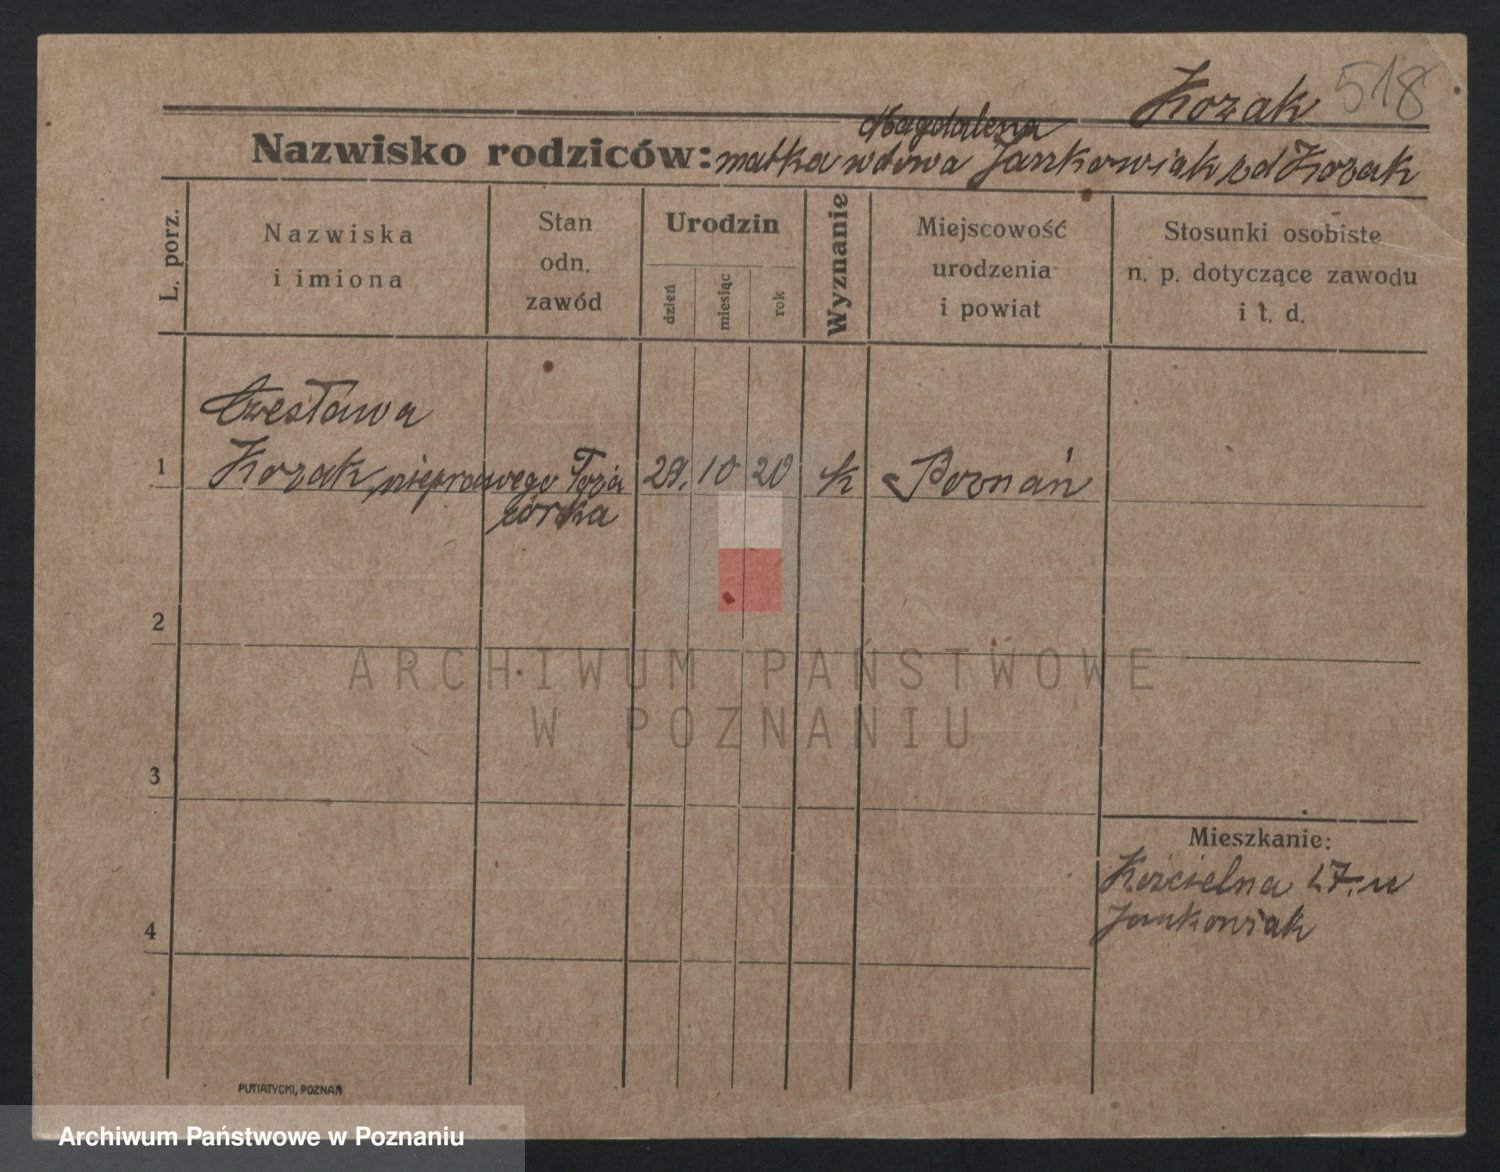 Kozak 518
Magdalena
Nazwisko rodziców: matka wdowa Jankowiak zd Kozak
L. porz.
Nazwiska
i imiona
Stan
odn.
zawód
Urodzin
dzień
miesiąc
rok
Wyznanie
Miejscowość
urodzenia
i powiat
Stosunki osobiste
n. p. dotyczące zawodu
i t. d.
Czesława
1 Kozak nieprawego łoża 29. 10 20 k Poznań
córka
2
3
4
Mieszkanie:
Kościelna 17. u
Jankowiak
PUTIATYCKI, POZNAŃ
ARCHIWUM PAŃSTWOWE
W POZNANIU
Archiwum Państwowe w Poznaniu